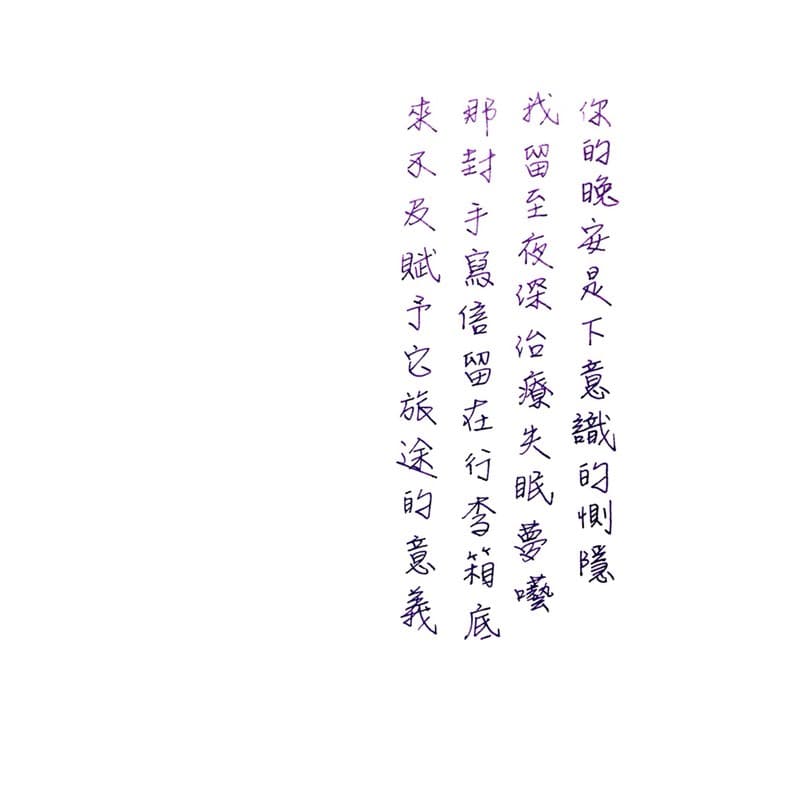 你的晚安是下意識的惻隱
我留至夜深治療失眠夢囈
那封手寫信留在行李箱底
來不及賦予它旅途的意義